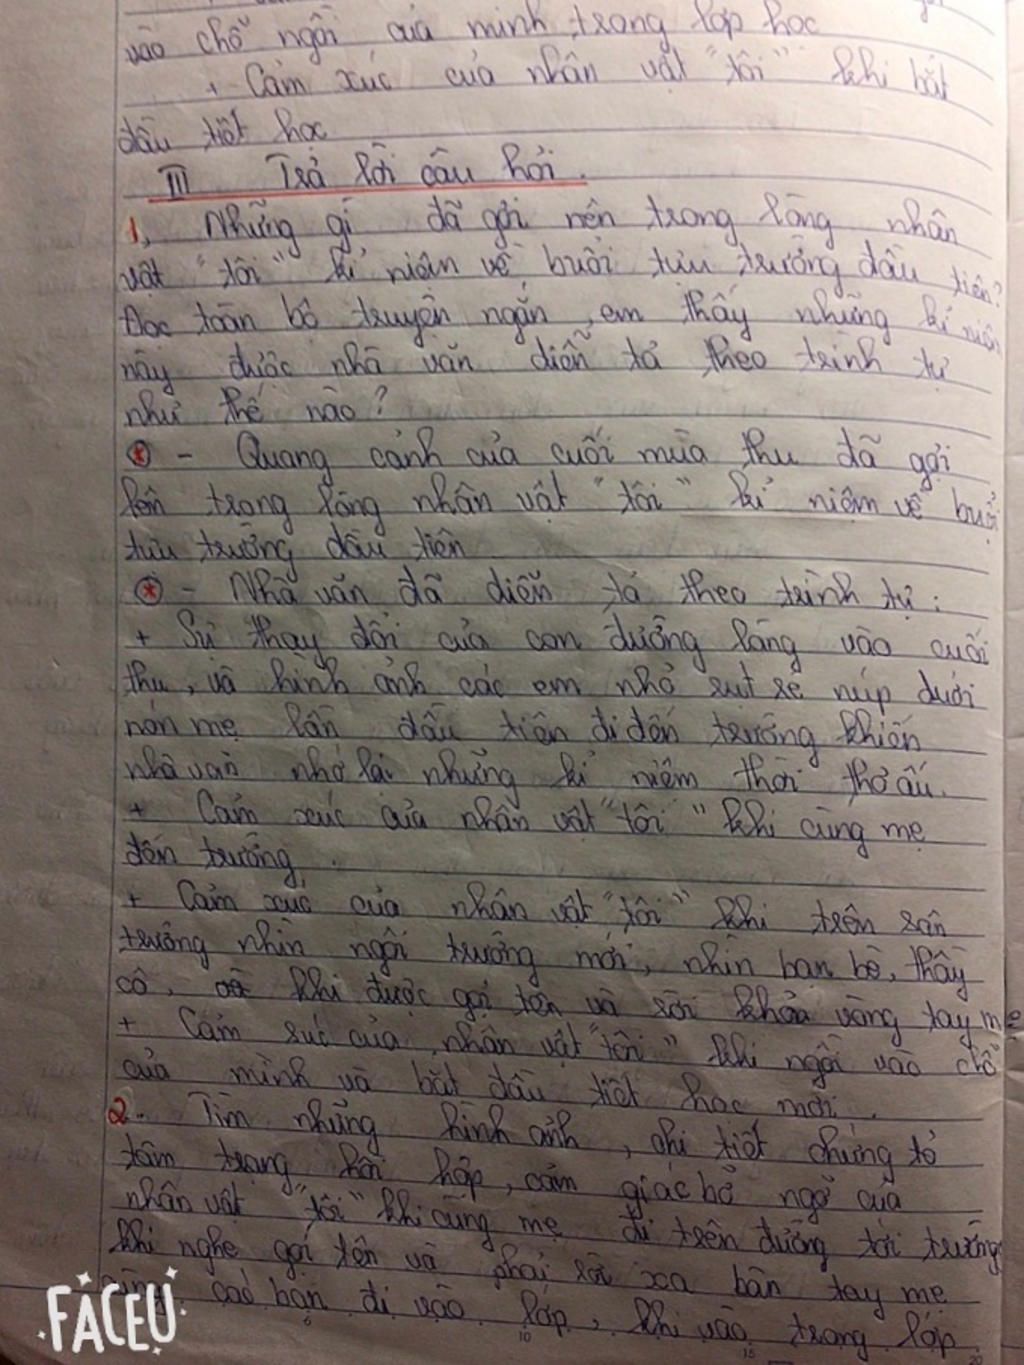 vào chỗ ngồi của mình trong lớp học
+ Cảm xúc của nhân vật "tôi" khi bắt
đầu tiết học
III Trả lời câu hỏi.
1, Những gì đã gợi nên trong lòng nhân
vật "tôi" kỉ niệm về buổi tựu trường đầu tiên?
Đọc toàn bộ truyện ngắn, em thấy những kỉ niệm
này được nhà văn diễn tả theo trình tự
như thế nào?
* - Quang cảnh của cuối mùa thu đã gợi
lên trong lòng nhân vật "tôi" kỉ niệm về buổi
tựu trường đầu tiên
* - Nhà văn đã diễn tả theo trình tự:
+ Sự thay đổi của con đường làng vào cuối
thu, và hình ảnh các em nhỏ rụt rè núp dưới
nón mẹ lần đầu tiên đi đến trường khiến
nhà văn nhớ lại những kỉ niệm thời thơ ấu.
+ Cảm xúc của nhân vật "tôi" khi cùng mẹ
đến trường.
+ Cảm xúc của nhân vật "tôi" khi trên sân
trường nhìn ngôi trường mới, nhìn bạn bè, thầy
cô, khi được gọi tên và rời khỏi vòng tay mẹ
+ Cảm súc của nhân vật "tôi" khi ngồi vào chỗ
của mình và bắt đầu tiết học mới.
2. Tìm những hình ảnh, chi tiết chứng tỏ
tâm trạng hồi hộp, cảm giác bỡ ngỡ của
nhân vật "tôi" khi cùng mẹ đi trên đường tới trường
khi nghe gọi tên và phải rời xa bàn tay mẹ
cùng các bạn đi vào lớp, khi vào trong lớp
FACEU